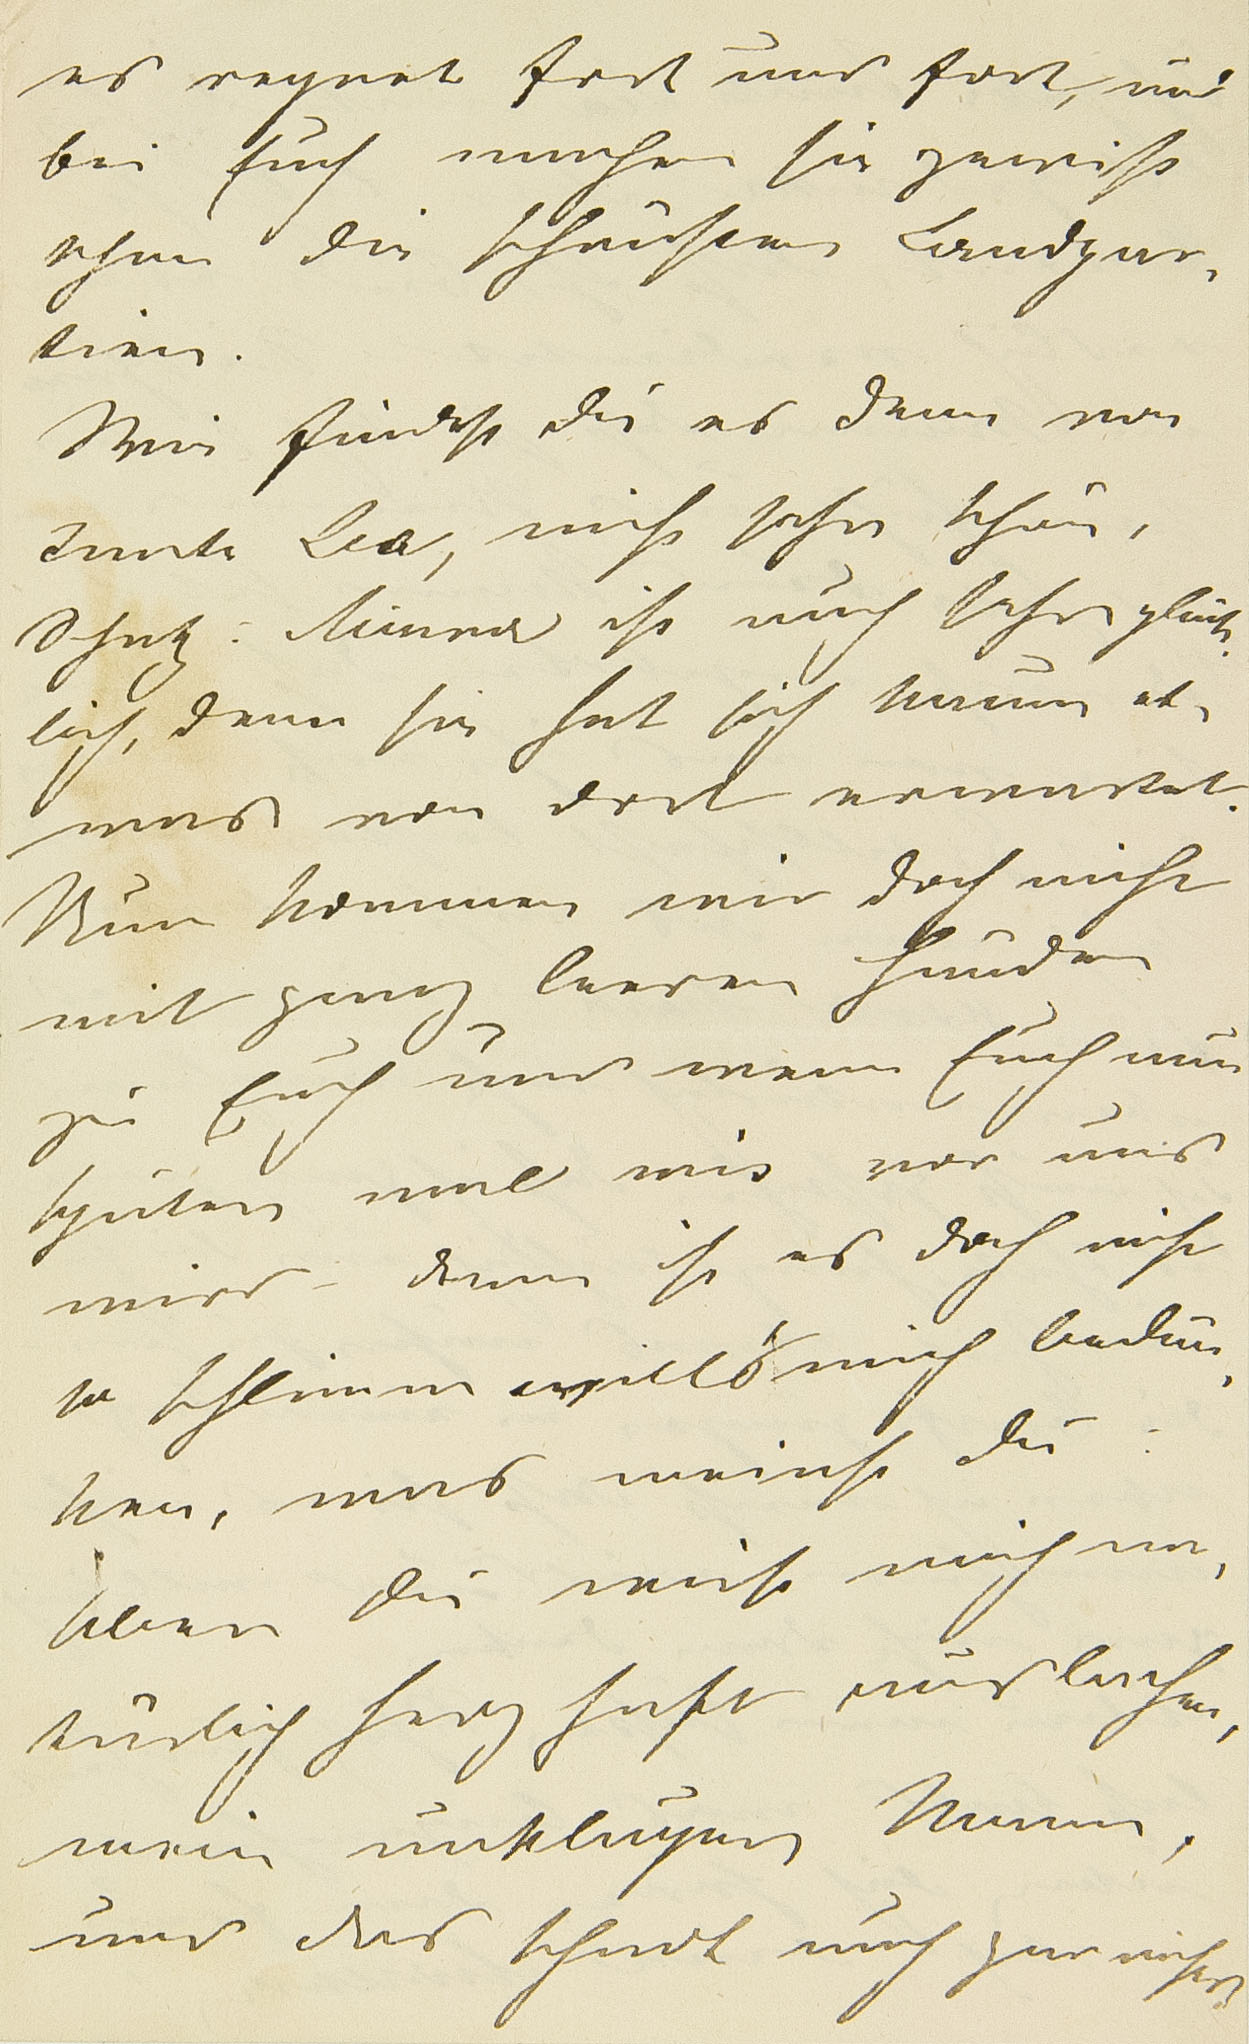 es regnet fort und fort, und
bei Euch machen sie gewiss
schon die schönsten Landpar-
tien.
Wie findest du es denn von
Tante Lea, nicht sehr schön,
Schatz? Minna ist auch sehr glück-
lich, denn sie hat sich kaum et-
was von dort erwartet.
Nun kommen wir doch nicht
mit ganz leeren Händen
zu Euch und wenn Euch nun
später mal mies vor uns
wird – dann ist es doch nicht
so schlimm will's mich bedün-
ken, was meinst du?
Aber du wirst mich na-
türlich herzhaft auslachen,
mein unkluger Mann,
und das schadt auch gar nichts